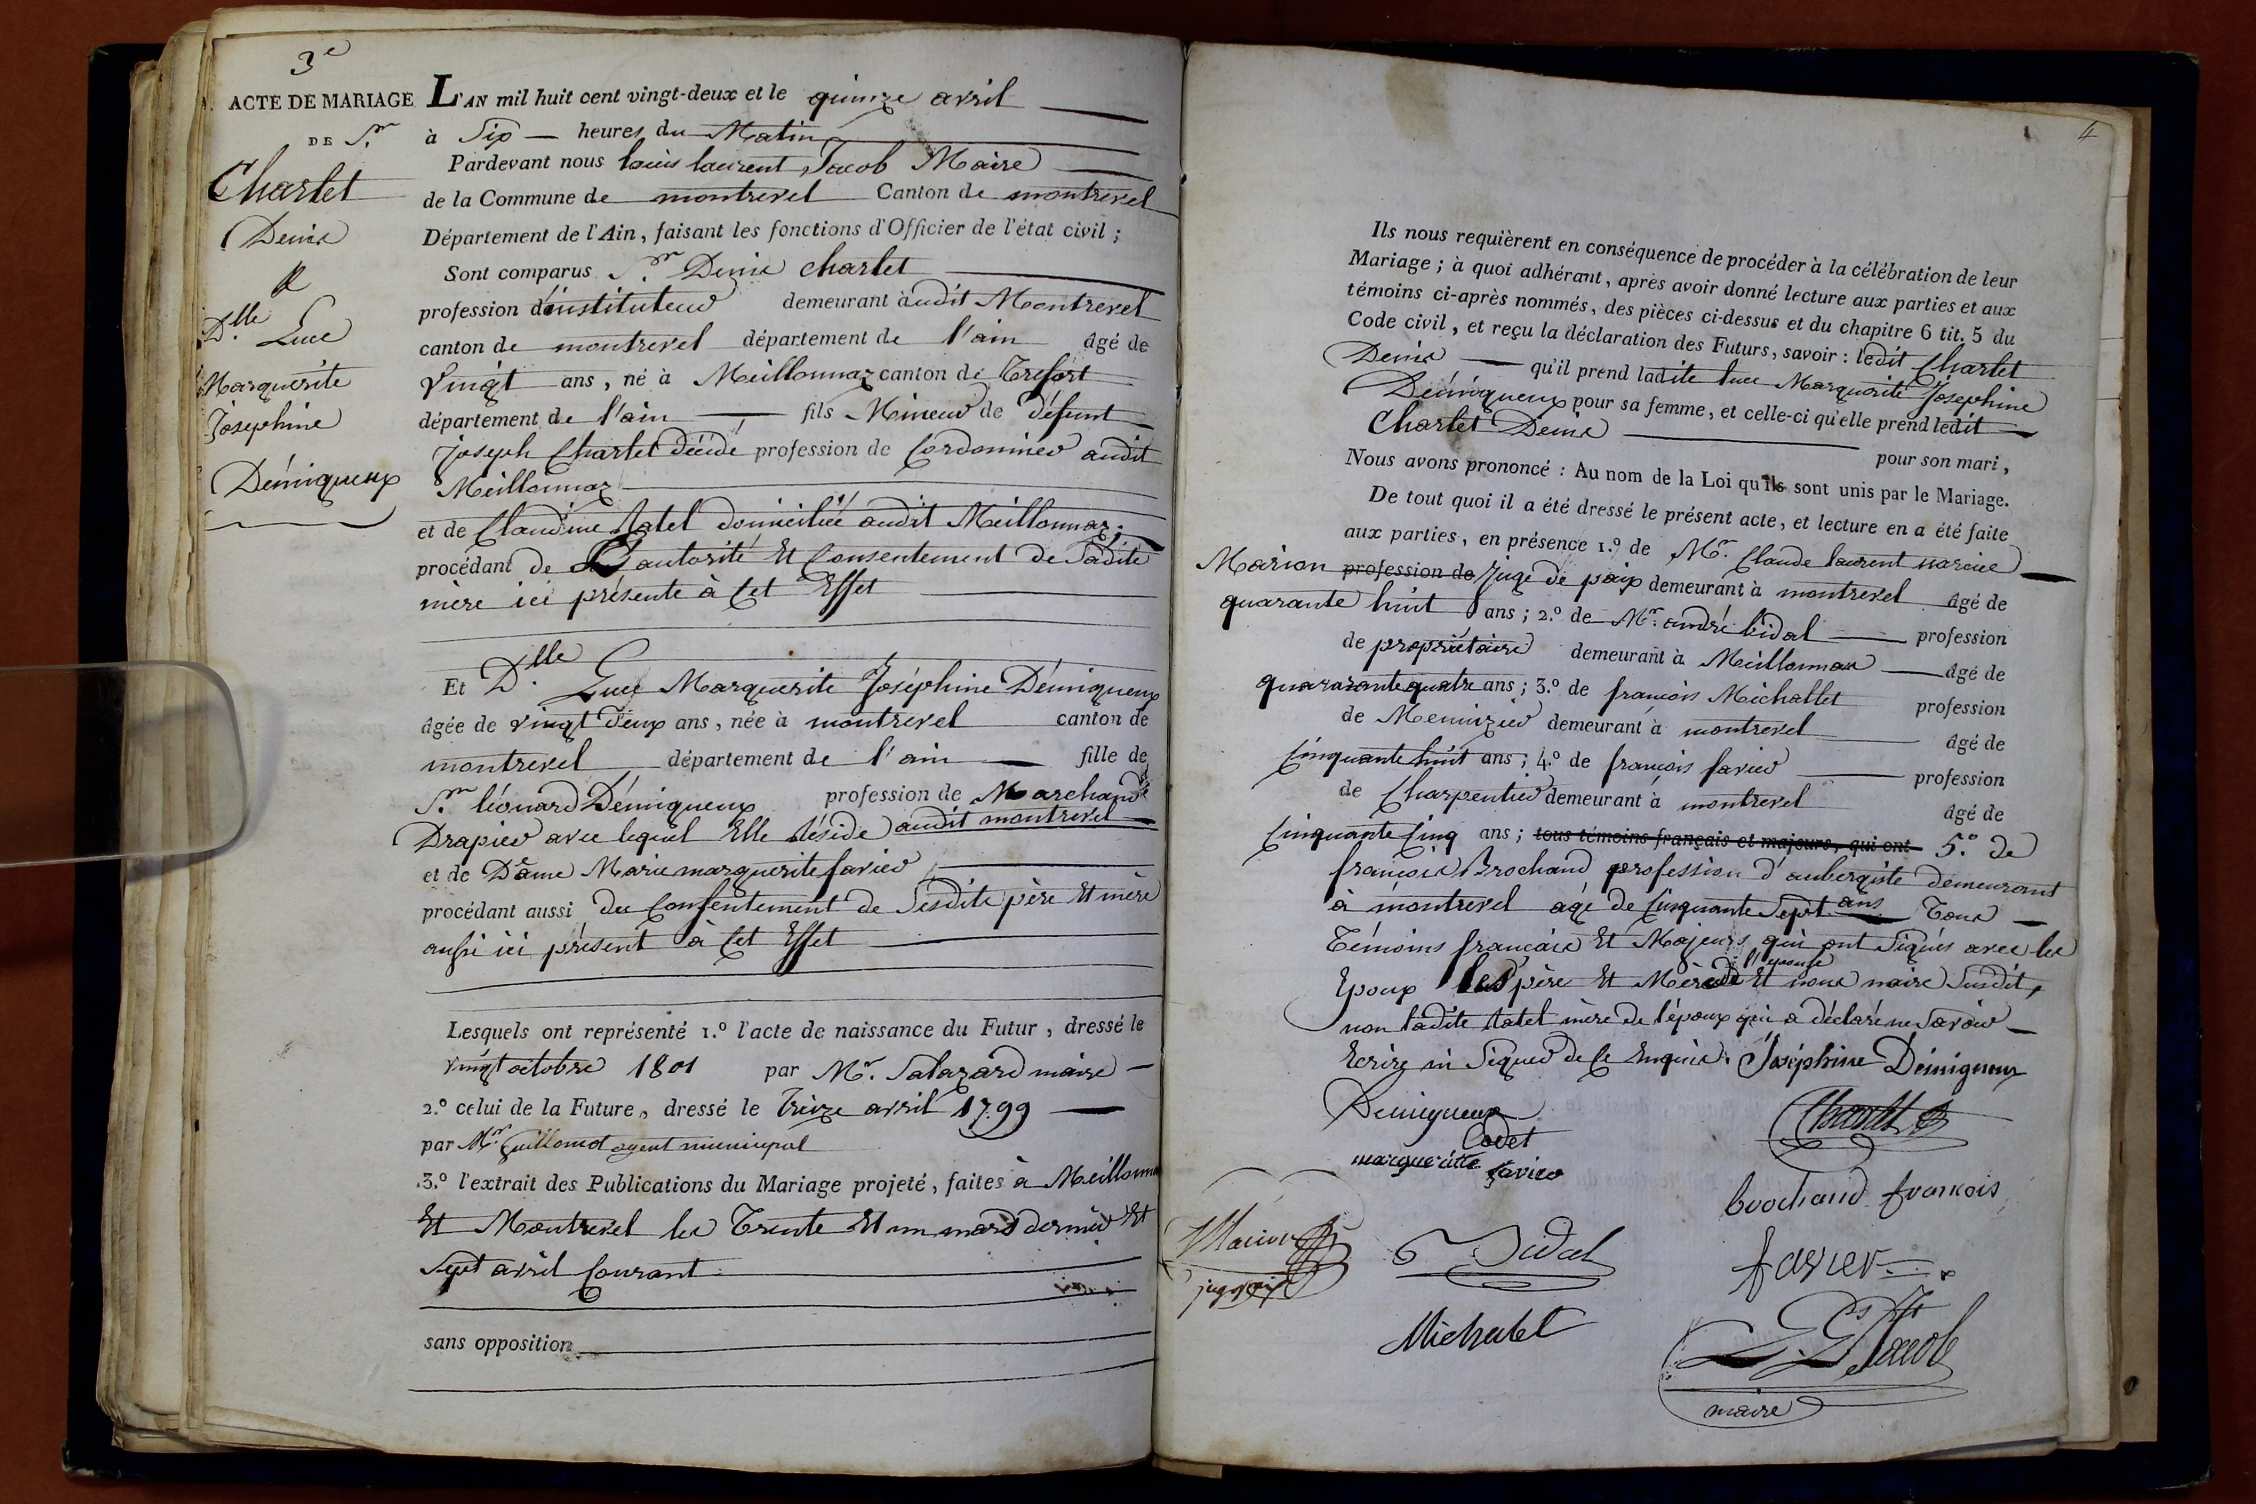 3e
ACTE DE MARIAGE
DE Sr.
Charlet
Denis
&
Dlle. Luce
Marguerite
Josephine
Déniqueux
L'AN mil huit cent vingt-deux et le quinze avril
à Six heures du Matin
Pardevant nous louis laurent Jacob Maire
de la Commune de montrevel Canton de montrevel
Département de l'Ain, faisant les fonctions d'Officier de l'état civil ;
Sont comparus Sr. Denis charlet
profession d'instituteur demeurant audit Montrevel
canton de montrevel département de l'ain âgé de
Vingt ans, né à Meillonnaz canton de Trefort
département de l'ain fils Mineur de défunt
joseph Charlet décédé profession de Cordonnier audit
Meillonnaz
et de Claudine Ratel domiciliée audit Meillonnaz ;
procédant de L'autorité Et Consentement de Sadite
mère ici présente à Cet Effet
Et Dlle. Luce Marguerite Joséphine Déniqueux
âgée de vingt deux ans, née à montrevel canton de
montrevel département de l'ain fille de
Sr. léonard Déniqueux profession de Marchand
Drapier avec lequel Elle Réside audit montrevel
et de Dame Marie marguerite favier
procédant aussi du Consentement de Sesdits père Et mère
aussi ici présent à Cet Effet
Lesquels ont représenté 1.º l'acte de naissance du Futur, dressé le
vingt octobre 1801 par Mr. Salazard maire
2.º celui de la Future, dressé le Treize avril 1799
par Mr. Guillomot agent municipal
3.º l'extrait des Publications du Mariage projeté, faites à Meillonna
Et Montrevel les Trente Et un mars dernier Et
Sept avril Courant
sans opposition
4
Ils nous requièrent en conséquence de procéder à la célébration de leur
Mariage ; à quoi adhérant, après avoir donné lecture aux parties et aux
témoins ci-après nommés, des pièces ci-dessus et du chapitre 6 tit. 5 du
Code civil, et reçu la déclaration des Futurs, savoir : ledit Charlet
Denis qu'il prend ladite luce Marguerite Josephine
Déniqueux pour sa femme, et celle-ci qu'elle prend ledit
Charlet Denis pour son mari,
Nous avons prononcé : Au nom de la Loi qu'ils sont unis par le Mariage.
De tout quoi il a été dressé le présent acte, et lecture en a été faite
aux parties, en présence 1.º de Mr. Claude laurent narcice
Marion profession de Juge de paix demeurant à montrevel âgé de
quarante huit ans ; 2.º de Mr. andré vidal profession
de propriétaire demeurant à Meillonnax âgé de
quararante quatre ans ; 3.º de françois Michallet profession
de Menuizier demeurant à montrevel âgé de
Cinquante huit ans ; 4.º de françois favier profession
de Charpentier demeurant à montrevel âgé de
Cinquante Cinq ans ; tous témoins français et majeurs, qui ont 5.º de
françois Brochand profession d'aubergiste demeurant
à montrevel âgé de Cinquante Sept ans Tous
Témoins français Et Majeurs qui ont Signés avec les
Epoux les père Et Mère de l'épouse Et nous maire Susdit,
non ladite Ratel mère de l'époux qui a déclaré ne Savoir
Ecrire ni Signer de Ce Enquis. Joséphine Déniqueux
Deniqueux
Cadet
Charlet
margueritte favier
brochand francois
Marion
juge de paix
Vidal
favier
Michalet
L. Jacob
maire